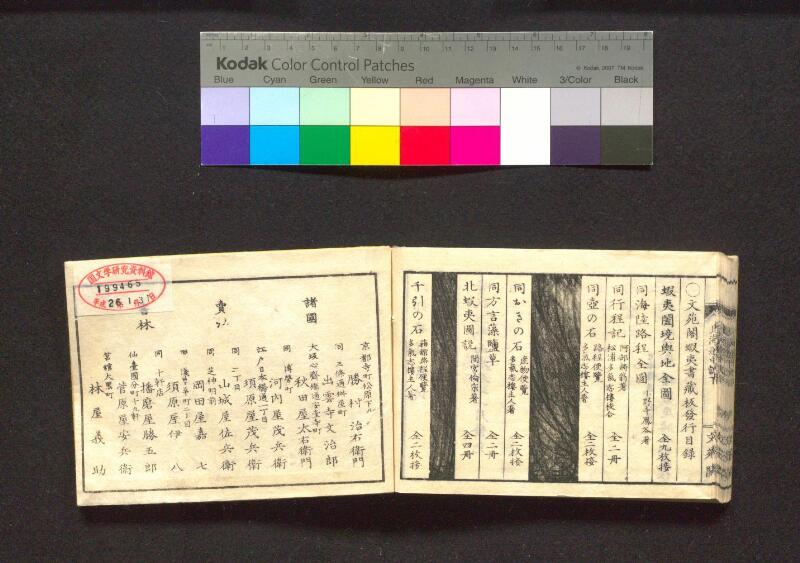 Kodak Color Control Patches
© Kodak, 2007 TM: Kodak
Blue Cyan Green Yellow Red Magenta White 3/Color Black
〇文苑閣蝦夷書藏板發行目録
蝦夷闔境輿地全圖 全九枚接
同海陸路程全圖
同行程記 阿部將翁著 松浦多気志樓校合 全一冊
同壺の石 路程便覽 多氣志樓主人著 全二枚接
同かきの石 産物便覽 多氣志樓主人著 全二枚搭
同方言藻鹽草 全二冊
北蝦夷圖説 間宮倫宗著 全四冊
千引の石 箱館路程便覽 多氣志樓主人著 全二枚搭
諸國
賣
林
京都寺町松原下ル 勝村治右衛門
同三條通 出雲寺文治郎
大坂心齋橋通安堂寺町 秋田屋太右衛門
同博勞町 河内屋茂兵衛
江戸日本橋通一丁目 須原屋茂兵衛
同二丁目 山城屋佐兵衛
同芝神明前 岡田屋嘉七
須原屋伊八
同十軒店 播磨屋勝五郎
仙臺國分町十九軒 菅原屋安兵衛
筥館大黒町 林屋義助
国文学研究資料館
199465
平成26.1.31